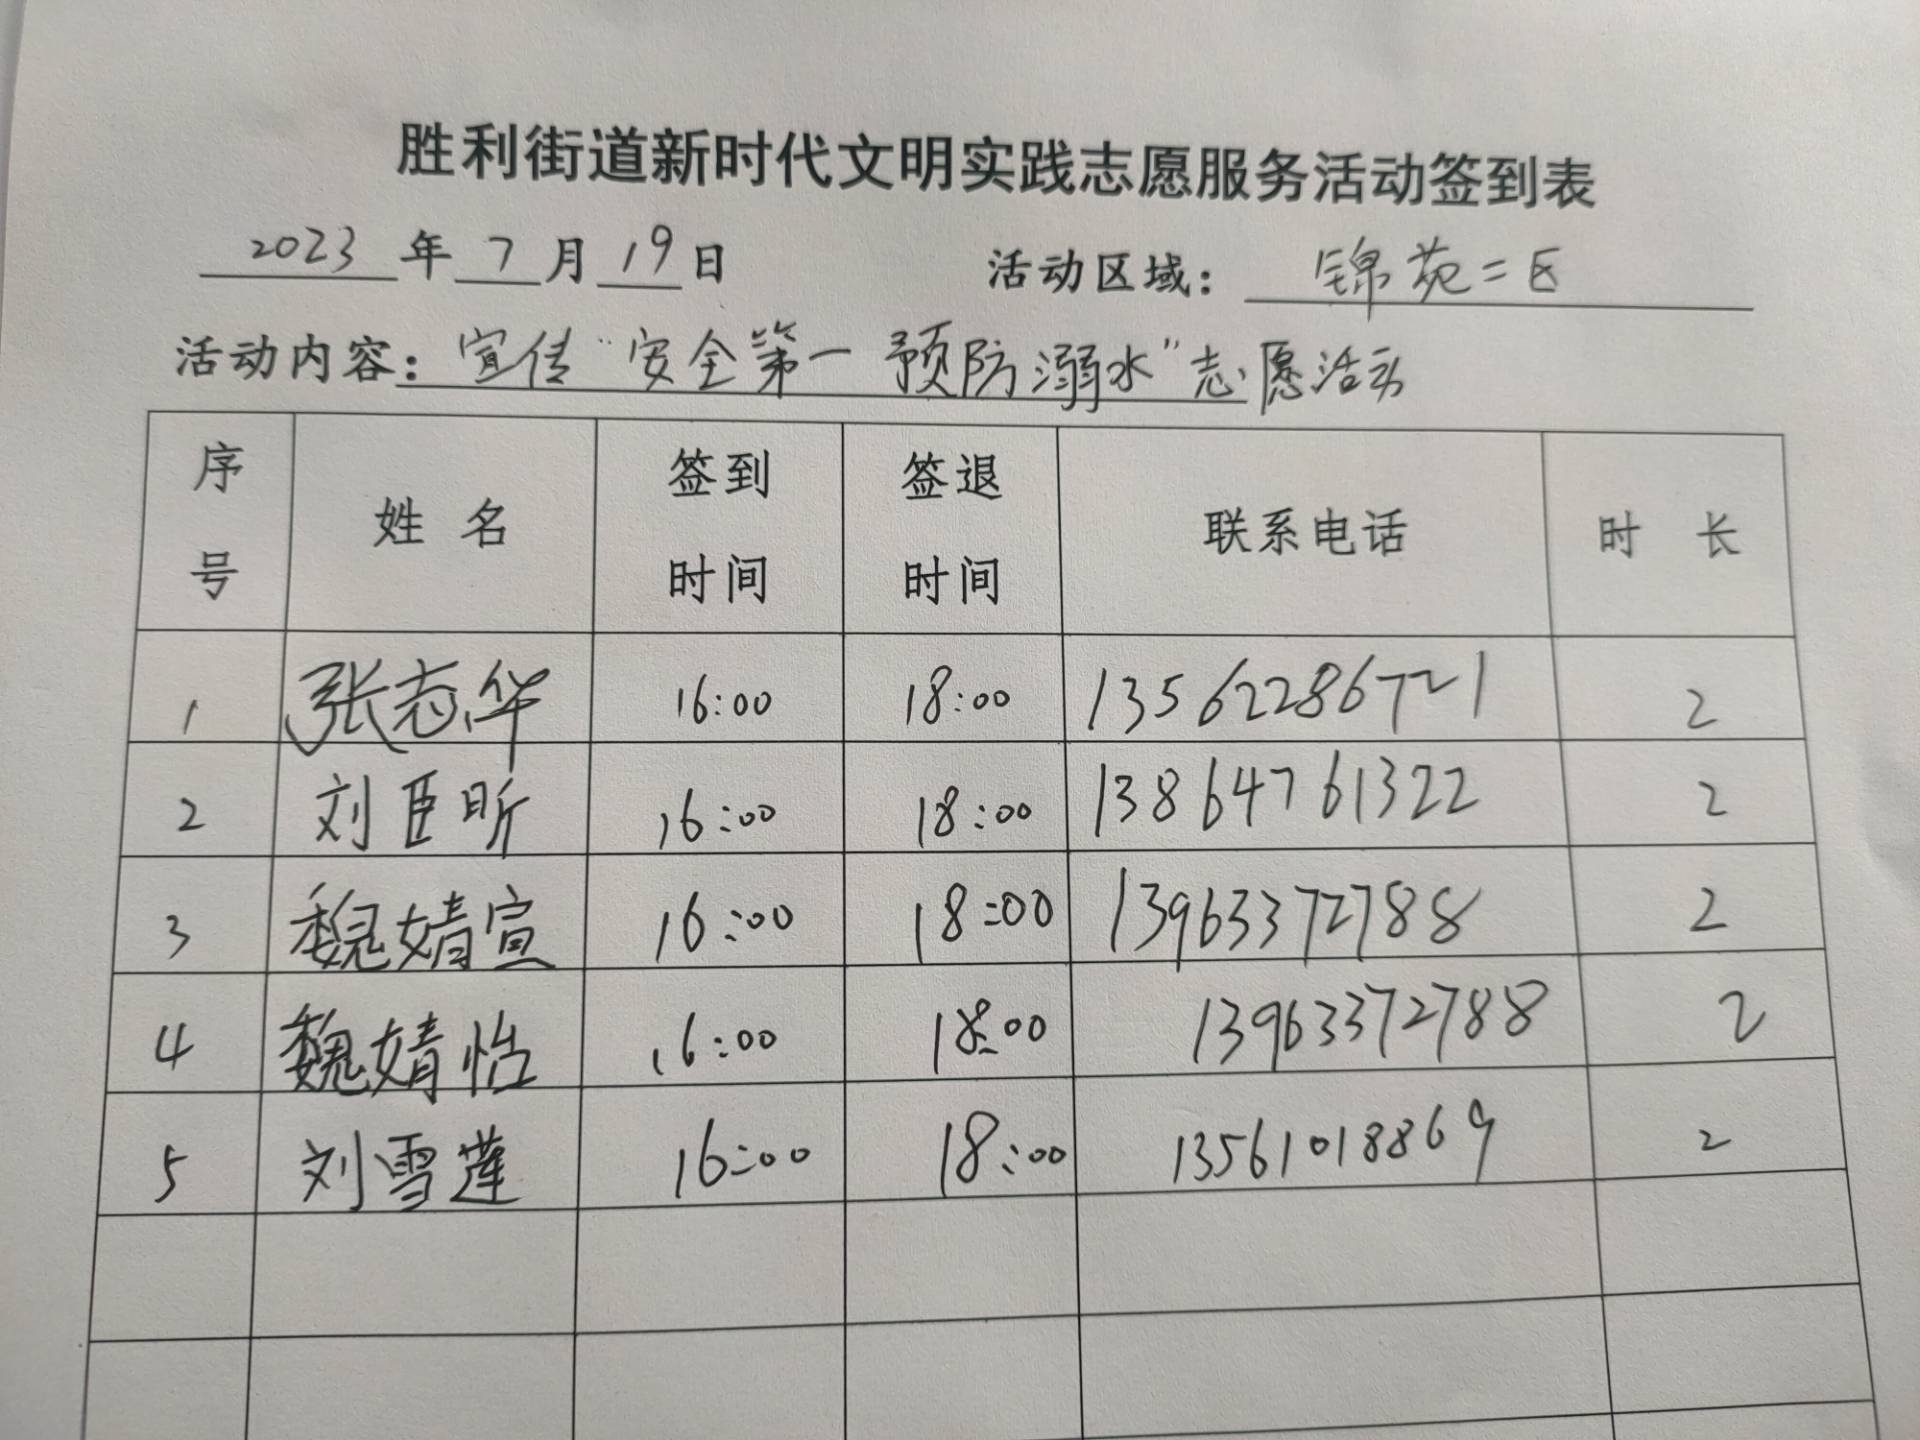 胜利街道新时代文明实践志愿服务活动签到表
2023年7月19日 活动区域：锦苑二区
活动内容：宣传“安全第一 预防溺水”志愿活动
序号 姓名 签到时间 签退时间 联系电话 时长
1 张志华 16:00 18:00 13562286721 2
2 刘臣昕 16:00 18:00 13864761322 2
3 魏婧宣 16:00 18:00 13963372788 2
4 魏婧怡 16:00 18:00 13963372788 2
5 刘雪莲 16:00 18:00 13561018869 2